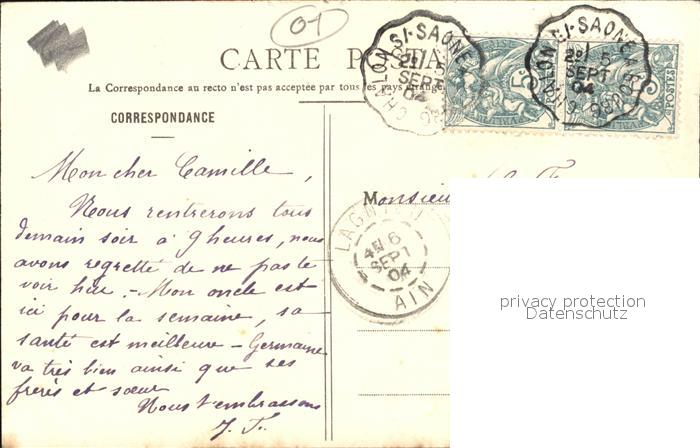 01
CARTE POSTA
La Correspondance au recto n'est pas acceptée par tous les pays étrange
CORRESPONDANCE
CHALON S/-SAONE
2E/ 5
SEPT
04
5c
POSTES
CHALON S/-SAONE A BOURG
2E/ 5
SEPT
04
Mon cher Camille,
Nous rentrerons tous
demain soir à 9 heures, nous
avons regretté de ne pas te
voir hier. - Mon oncle est
ici pour la semaine, sa
santé est meilleure - Germaine
va très bien ainsi que ses
frères et sœur
Nous t'embrassons
J. F.
Monsieur
LAGNIEU
6
SEPT
04
AIN
privacy protection
Datenschutz